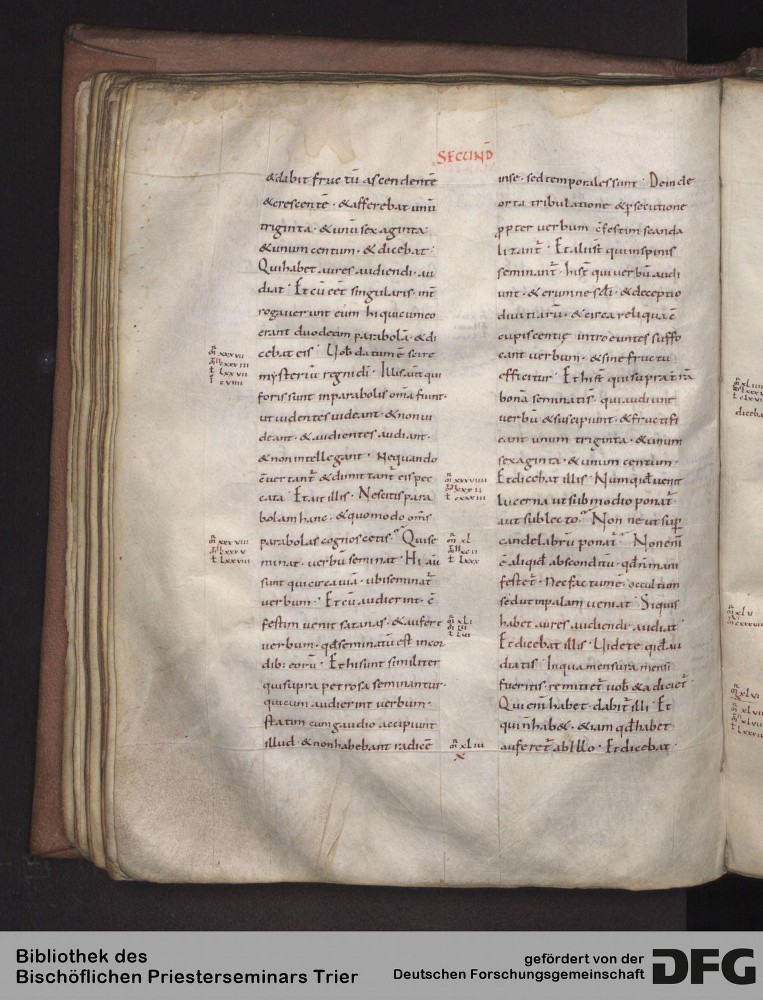 SECUND̄
& dabit fructū ascendentē
& crescentē · & afferebat unū
triginta · & unū sexaginta
& unum centum · & dicebat ·
Qui habet aures audiendi · au
diat · Et cū eēt singularis · int̄
rogauerunt eum hi qui cum eo
erant duodecim parabolā · & di
cebat eis · Uob̄ datum ē scire
mysteriū regni d̄i · Illis aūt qui
foris sunt in parabolis om̄a fiunt ·
ut uidentes uideant · & non ui
deant · & audientes audiant ·
& non intellegant · Nequando
c̄uertant̄ & dimittant̄ eis pec
cata · Et ait illis · Nescitis para
bolam hanc · & quomodo om̄s
parabolas cognoscetis · Qui se
minat · uerbū seminat · Hi aū
sunt qui circa uiā · ubi seminat̄
uerbum · Et cū audierint · c̄
festim uenit satanas · & aufert
uerbum · qd̄ seminatū est in cor
dib: eorū · Et hi sunt similiter
qui supra petrosa seminantur ·
qui cum audierint uerbum ·
statim cum gaudio accipiunt
illud · & non habebant radicē
inse · sed temporales sunt · Deinde
orta tribulatione & p̄secutione
ppter uerbum c̄festim scanda
lizant̄ · Et alii st̄ qui in spinis
seminant̄ · Hi st̄ qui uerbū audi
unt · & erumne sc̄li · & deceptio
diuitiarū · & circa reliqua c̄
cupiscentię introeuntes suffo
cant uerbum · & sine fructu
efficitur · Et hi st̄ qui supra t̄rā
bonā seminati st̄ · qui audiunt
uerbū & suscipiunt · & fructifi
cant unum triginta · & unum
sexaginta · & unum centum ·
Et dicebat illis · Numquid uenit
lucerna ut sub modio ponat̄ ·
aut sub lecto · Non ne ut sup̄
candelabrū ponat̄ · Non enī
ē aliquid absconditū · qd̄ n̄ mani
festet̄ · Nec factum ē · occultum
sed ut in palam ueniat · Si quis
habet aures audiendi audiat ·
Et dicebat illis · Uidete quid au
diatis · In qua mensura mensi
fueritis remitiet̄ uob̄ & adiciet̄ ·
Qui enī habet dabit̄ illi · Et
qui n̄ hab& · etiam qd̄ habet
auferet̄ ab illo · Et dicebat ·
Bibliothek des
Bischöflichen Priesterseminars Trier
gefördert von der
Deutschen Forschungsgemeinschaft
DFG